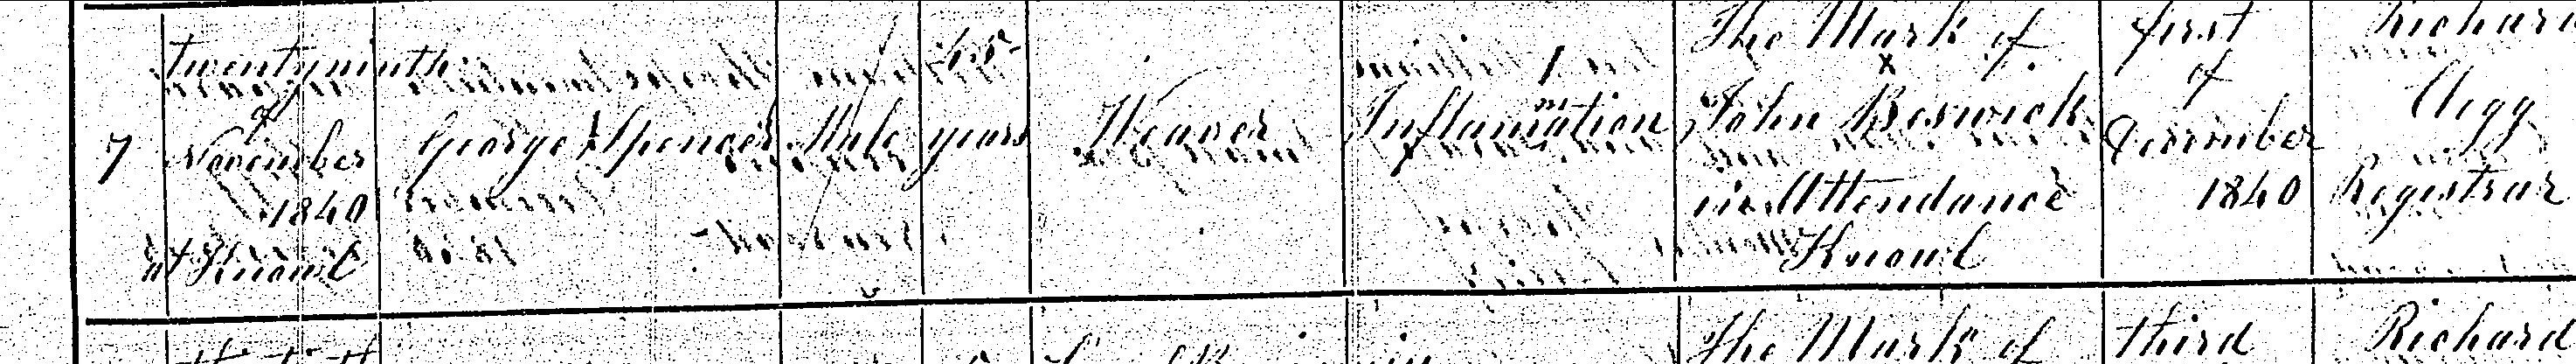 7
twentyninth
of
November
1840
at Knowl
George Spencer
Male
years
Weaver
Inflamation
The Mark of
x
John Beswick
in Attendance
Knowl
first
of
December
1840
Richard
Clegg
Registrar
The Mark of
third
Richard